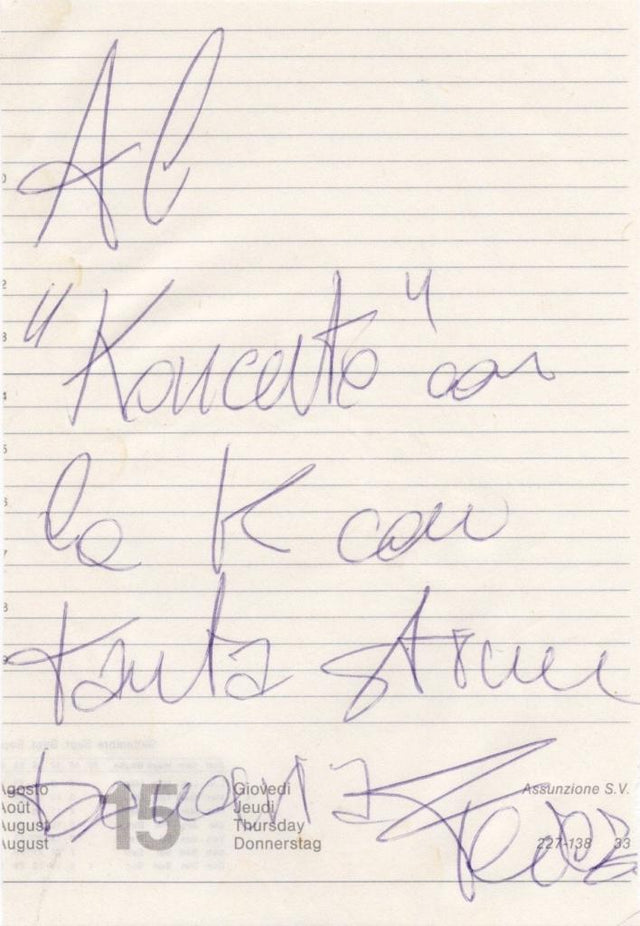 Al
"Koncerto" con
la K con
tanta stima
Agosto 15 Giovedì Assunzione S.V.
Août Jeudi
August Thursday
August Donnerstag 227-138 33